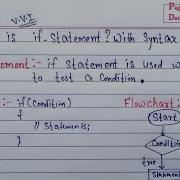 V.V.I
is if-Statement? With Syntax
ement:- if Statement is used w
to test a Condition.
:- if (Condition)
{
// Statements;
}
Flowchart:
Start
Conditi
true
Statement